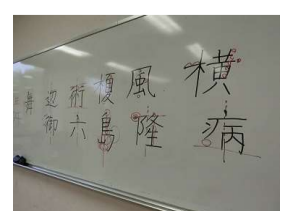 横病
風隆
榎鳥
術六
辺御